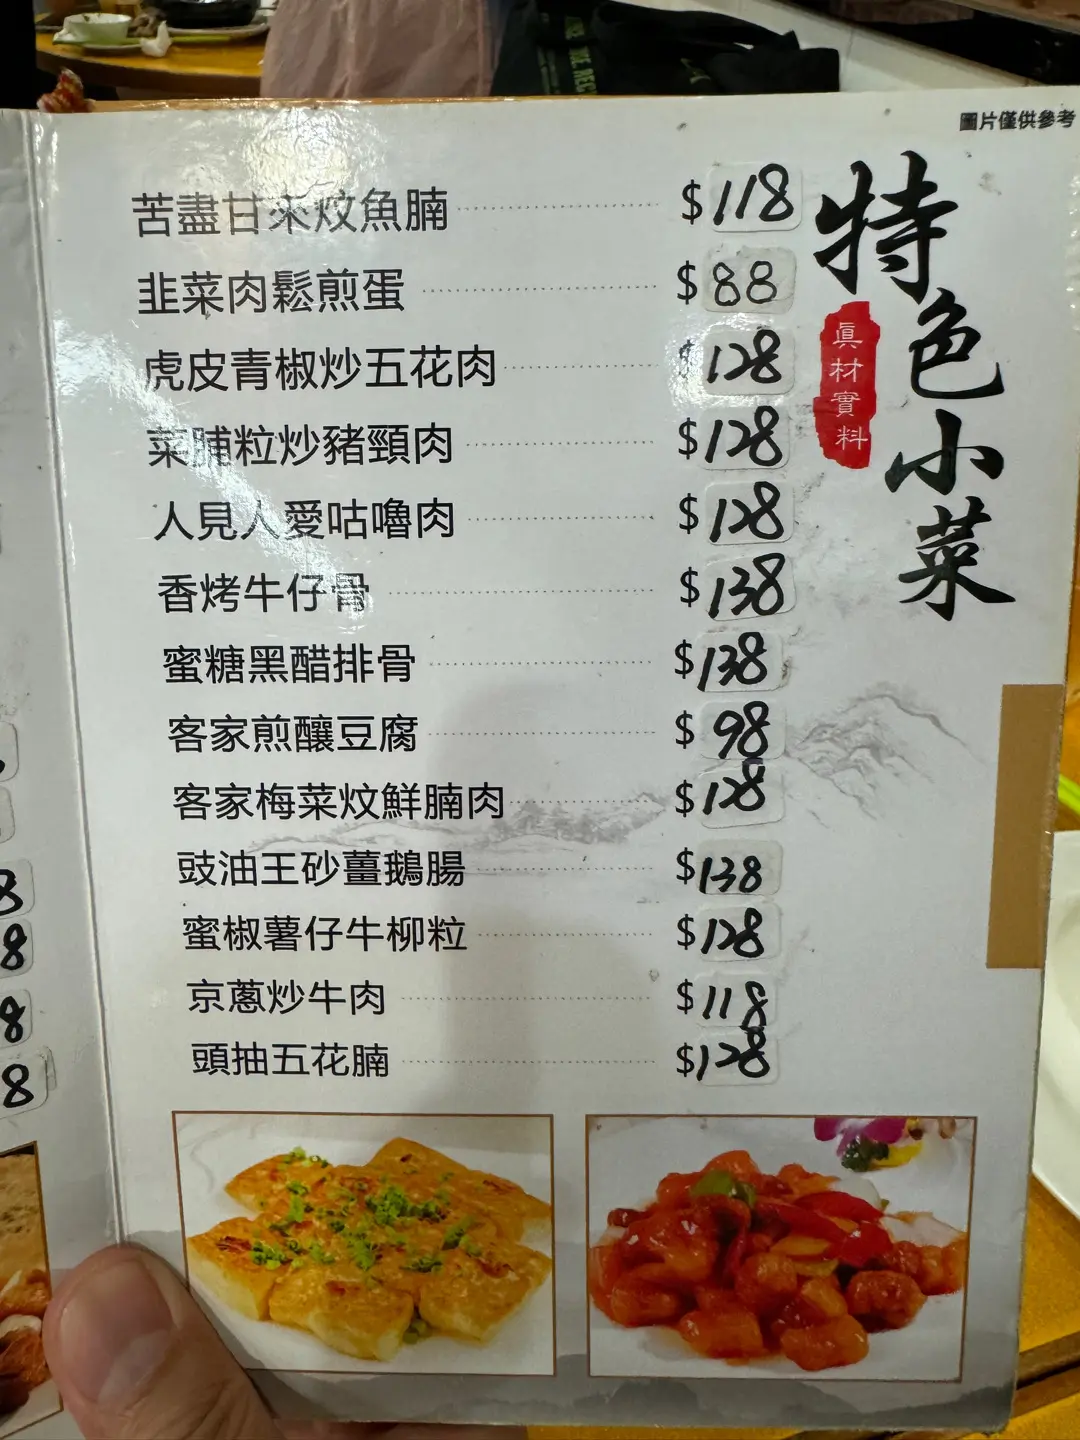 圖片僅供參考
特色小菜
真材實料
苦盡甘來炆魚腩 $118
韭菜肉鬆煎蛋 $88
虎皮青椒炒五花肉 $128
菜脯粒炒豬頸肉 $128
人見人愛咕嚕肉 $128
香烤牛仔骨 $138
蜜糖黑醋排骨 $138
客家煎釀豆腐 $98
客家梅菜炆鮮腩肉 $128
豉油王砂薑鵝腸 $138
蜜椒薯仔牛柳粒 $128
京蔥炒牛肉 $118
頭抽五花腩 $128
8
8
8
8